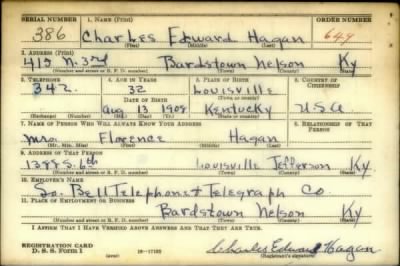 SERIAL NUMBER 1. NAME (Print) ORDER NUMBER
386 Charles Edward Hagan 649
(First) (Middle) (Last)
2. ADDRESS (Print)
415 N. 3rd Bardstown Nelson Ky
(Number and street or R. F. D. number) (Town) (County) (State)
3. TELEPHONE 4. AGE IN YEARS 5. PLACE OF BIRTH 6. COUNTRY OF CITIZENSHIP
342 32 Louisville
DATE OF BIRTH (Town or county)
Aug 13 1908 Kentucky USA
(Exchange) (Number) (Mo.) (Day) (Yr.) (State or country)
7. NAME OF PERSON WHO WILL ALWAYS KNOW YOUR ADDRESS 8. RELATIONSHIP OF THAT PERSON
Mrs. Florence Hagan
(Mr., Mrs., Miss) (First) (Middle) (Last)
9. ADDRESS OF THAT PERSON
S. 6th Louisville Jefferson Ky
(Number and street or R. F. D. number) (Town) (County) (State)
10. EMPLOYER'S NAME
So. Bell Telephone & Telegraph Co.
11. PLACE OF EMPLOYMENT OR BUSINESS
Bardstown Nelson Ky.
(Number and street or R. F. D. number) (Town) (County) (State)
I AFFIRM THAT I HAVE VERIFIED ABOVE ANSWERS AND THAT THEY ARE TRUE.
REGISTRATION CARD
D. S. S. Form 1 (over) 16-17105 Charles Edward Hagan
(Registrant's signature)